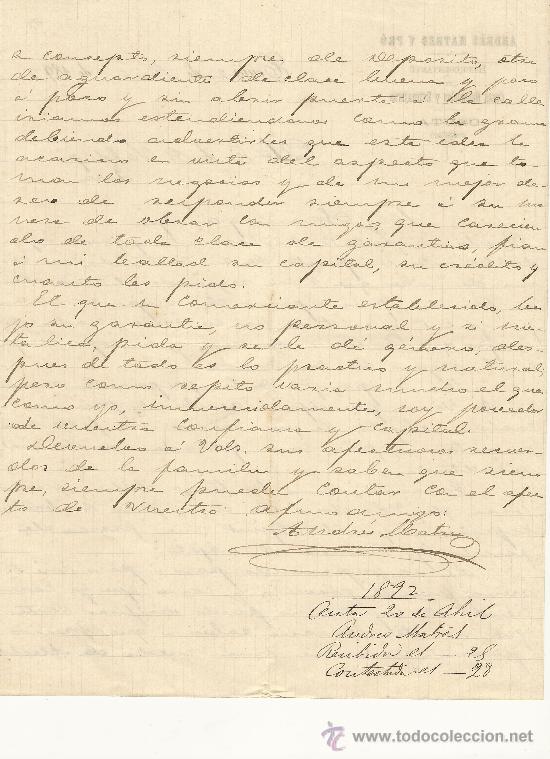 concepto, siempre de deposito, otra
de aguardiente de clase buena y poco
á poco y sin abrir puertas á la calle
iriamos estendiendonos como la grama
debiendo advertirles que esta idea la
acaricio en vista del aspecto que to-
man los negocios y de mi mejor de-
seo de responder siempre á su no-
de obrar con migo, que carecien-
do de toda clase de garantias, fian
á mi lealtad su capital, su crédito y
cuanto les pido.
El que un Comerciante establecido, ba-
jo su garantia, no personal y si me-
talica, pida y se le dé género, des-
pues de todo es lo practico y natural,
pero como repito varia mucho el que
como yo, inmerecidamente, soy poseedor
de vuestra confianza y capital.
á Vds. sus afectuosos recuer-
dos de la familia y saben que siem-
pre, siempre puede contar con el afec-
to de Vuestro afmo amigo:
Andrés Matres
1892
Ceuta 20 de Abril
Andres Matres
Recibida el — 28
Contestada el — 28
ANDRÉS MATRES Y PRÓ
www.todocoleccion.net